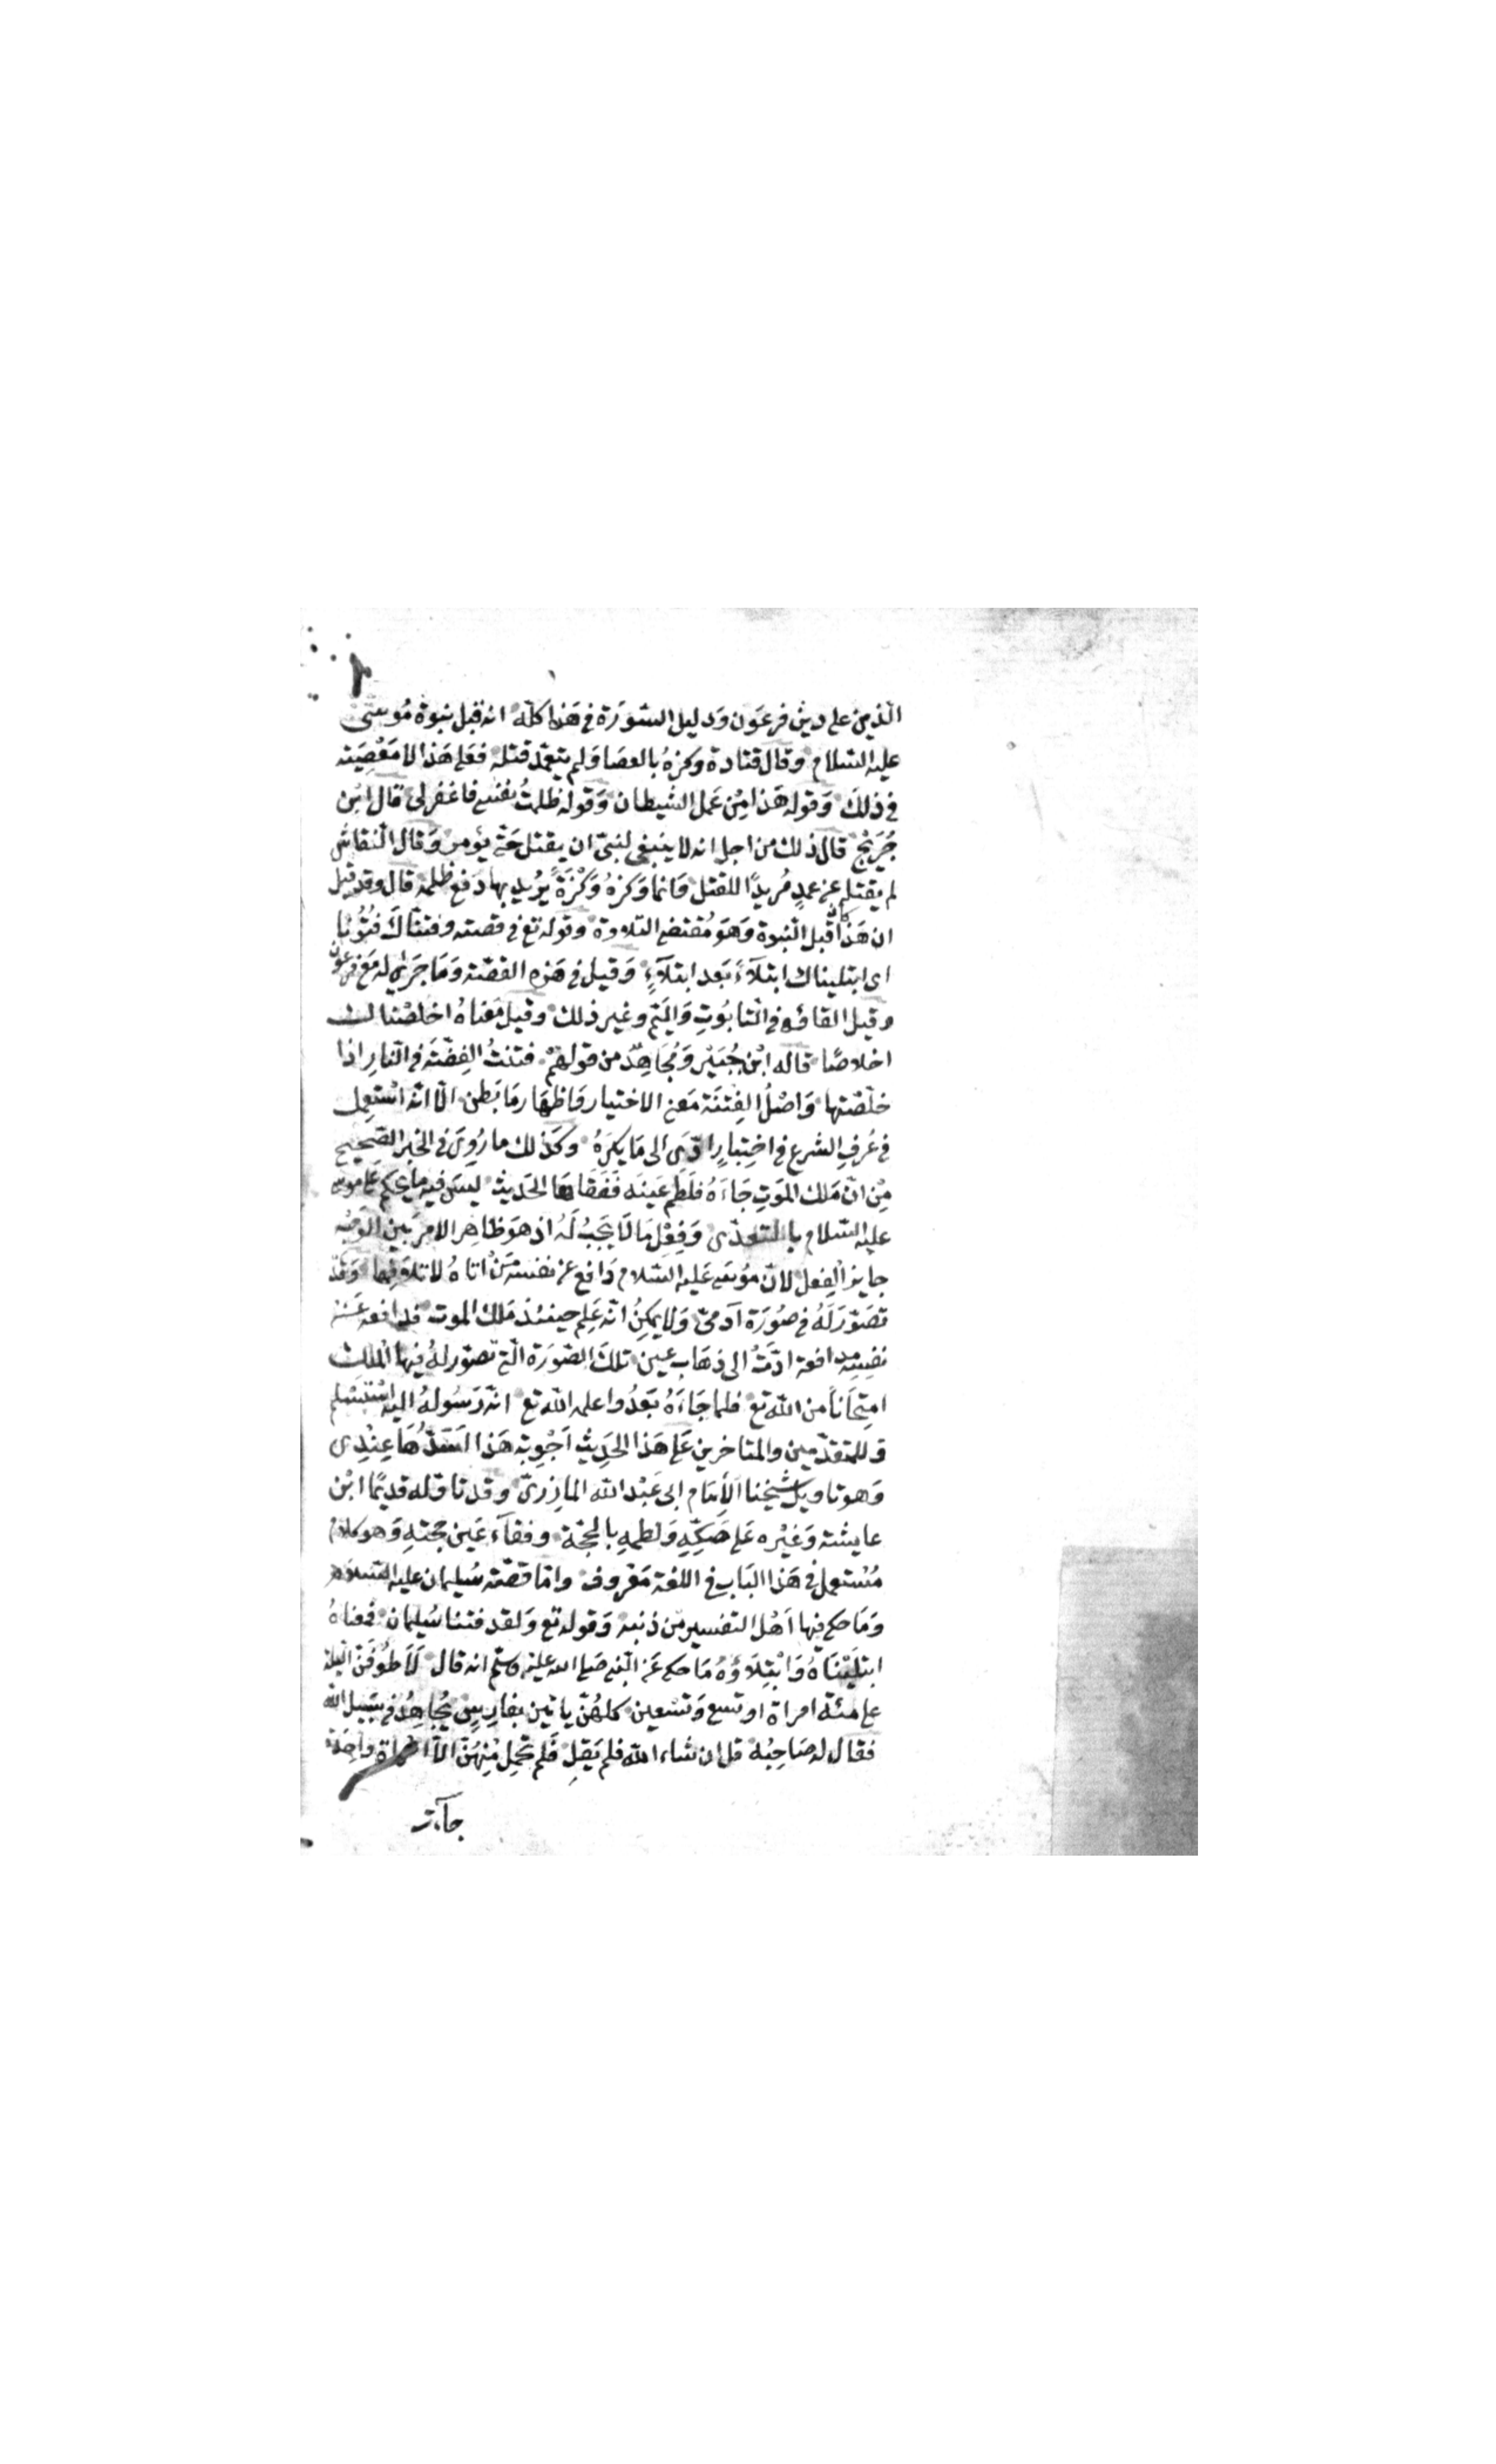 الّذين على دين فرعَون وَدليل السّورَة في هَذا كلّه انه قبل نبوة مُوسى
عليه السّلام وقال قتادة وكزهُ بالعصَا وَلم يتعمّد قتله فعلى هَذا لا مَعْصِيَة
في ذلكَ وَقوله هَذا مِنْ عَمل الشيطان وَقوله ظلمتُ نفسي فاغفر لى قال ابْن
جُرَيْج قال ذلك من اجل انه لا ينبغي لنبيّ ان يقتل حَتّى يؤمر وَقال النّقاش
لم يقتله عن عمدٍ مُريدًا للقتل وَانما وَكزهُ وَكْزَةً يُريد بها دَفع ظلمه قال وقد قيل
ان هَذا كان قبل النّبوة وَهَوَ مُقتضى التلاوة وقوله تع في قصته وفتناكَ فُتُونًا
اى ابتليناك ابتلآءً بَعد ابتلآءٍ وَقيل في هَذه القصّة وَمَا جَرَى له مَعَ فرعون
وقيل القاؤه في التّابُوتِ وَاليَمّ وغير ذلك وقيل مَعْناهُ اخلصْناك
اخلاصًا قاله ابْن جُبَيْر وَمُجَاهِدٌ من قولهمْ فتنتُ الفِضّة في النّارِ اذا
خلّصْتها وَاصْلُ الفِتنَة مَعنى الاختبار وَاظهَار مَا بَطن الّا انّه اسْتعمل
في عُرفِ الشرع في اختِبارٍ ادّى الى مَا يكرَهُ وكذلك ما رُوِىَ في الخبر الصّحيح
مِنْ انّ مَلك المَوتِ جَاءَهُ فلَطم عَينه فَفَقَاهَا الحَديث ليسَ فيه ما يحكم على موسى
عليْه السّلام بالتّعدّى وَفِعْل مَا لَا يَجِبُ لَهُ اذ هوَ ظاهر الامر بَين الوَجْه
جايز الفعل لانّ مُوسَى عَليه السّلام دَافع عن نفسه مَنْ اتاهُ لاتلافها وَقَدْ
تصَوّرَ لَهُ في صُورَة آدمىّ وَلا يمكن انّه عَلِم حينئذ مَلك الموت فدافعه عَنْ
نفسِهِ مدافعة ادّتْ الى ذهَاب عين تلكَ الصّورَة الّتى تصوّر لهُ فيها الملك
امتِحَانًا من الله تع فلما جَاءَهُ بَعْدُ واعلمه الله تع انّه رَسُولهُ اليْه اسْتسْلم
وَللمتقدّمين والمتاخرين عَلى هَذا الحَدِيث اَجْوِبة هَذا اَسَدُّهَا عِنْدِى
وَهو تاويل شيْخنا الاِمَام ابى عَبْد الله المازرىّ وقد تاوّله قديمًا ابْن
عايشة وَغيْره عَلى صَكّهِ وَلطمهِ بالحجّة وفقاء عَين حجّتهِ وَهو كلامٌ
مُسْتعمل في هَذا البَاب في اللغة مَعْروف وامّا قصّة سُليمان عليه السّلام
وَمَا حكى فيها اَهْل التفسير من ذنبه وَقوله تع وَلقد فتنا سُليمان فمعناهُ
ابتَليْناهُ وَابْتِلاؤهُ مَا حكى عَن النّبى صَلى الله عليْه وسلّم انه قال لَاَطُوفَنّ الليلة
على مئة امراة او تسع وَتسْعين كلهُنّ ياتين بفارسٍ يُجَاهِدُ في سَبيل الله
فقال له صَاحِبُه قل ان شاء الله فلم يَقل فَلم تحمل مِنْهُنّ الّا امراة وَاحِدَة
جآءت